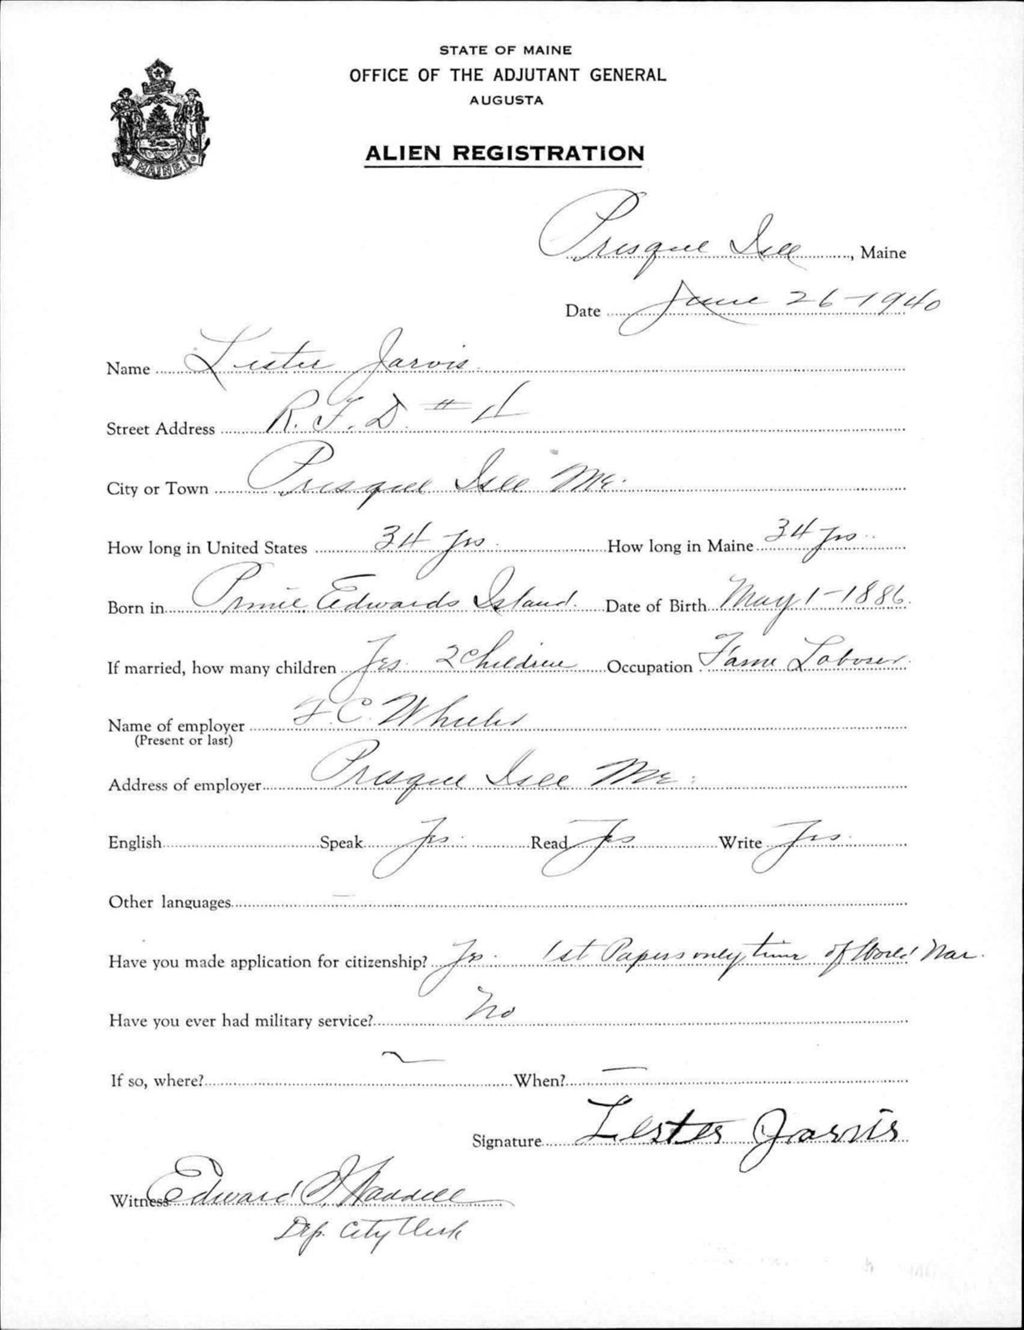 STATE OF MAINE
OFFICE OF THE ADJUTANT GENERAL
AUGUSTA
MAINE
ALIEN REGISTRATION
Presque Isle, Maine
Date June 26-1940
Name Lester Jarvis
Street Address R.F.D. # 4
City or Town Presque Isle Me.
How long in United States 34 yrs How long in Maine 34 yrs
Born in Prince Edwards Island Date of Birth May 1-1886
If married, how many children Yes 2 Children Occupation Farm Laborer
Name of employer F. C. Wheeler
(Present or last)
Address of employer Presque Isle Me:
English Speak Yes Read Yes Write Yes
Other languages —
Have you made application for citizenship? Yes. 1st Papers only time of World War.
Have you ever had military service? No
If so, where? — When? —
Signature Lester Jarvis
Witness Edward Waddell
Dep. City Clerk